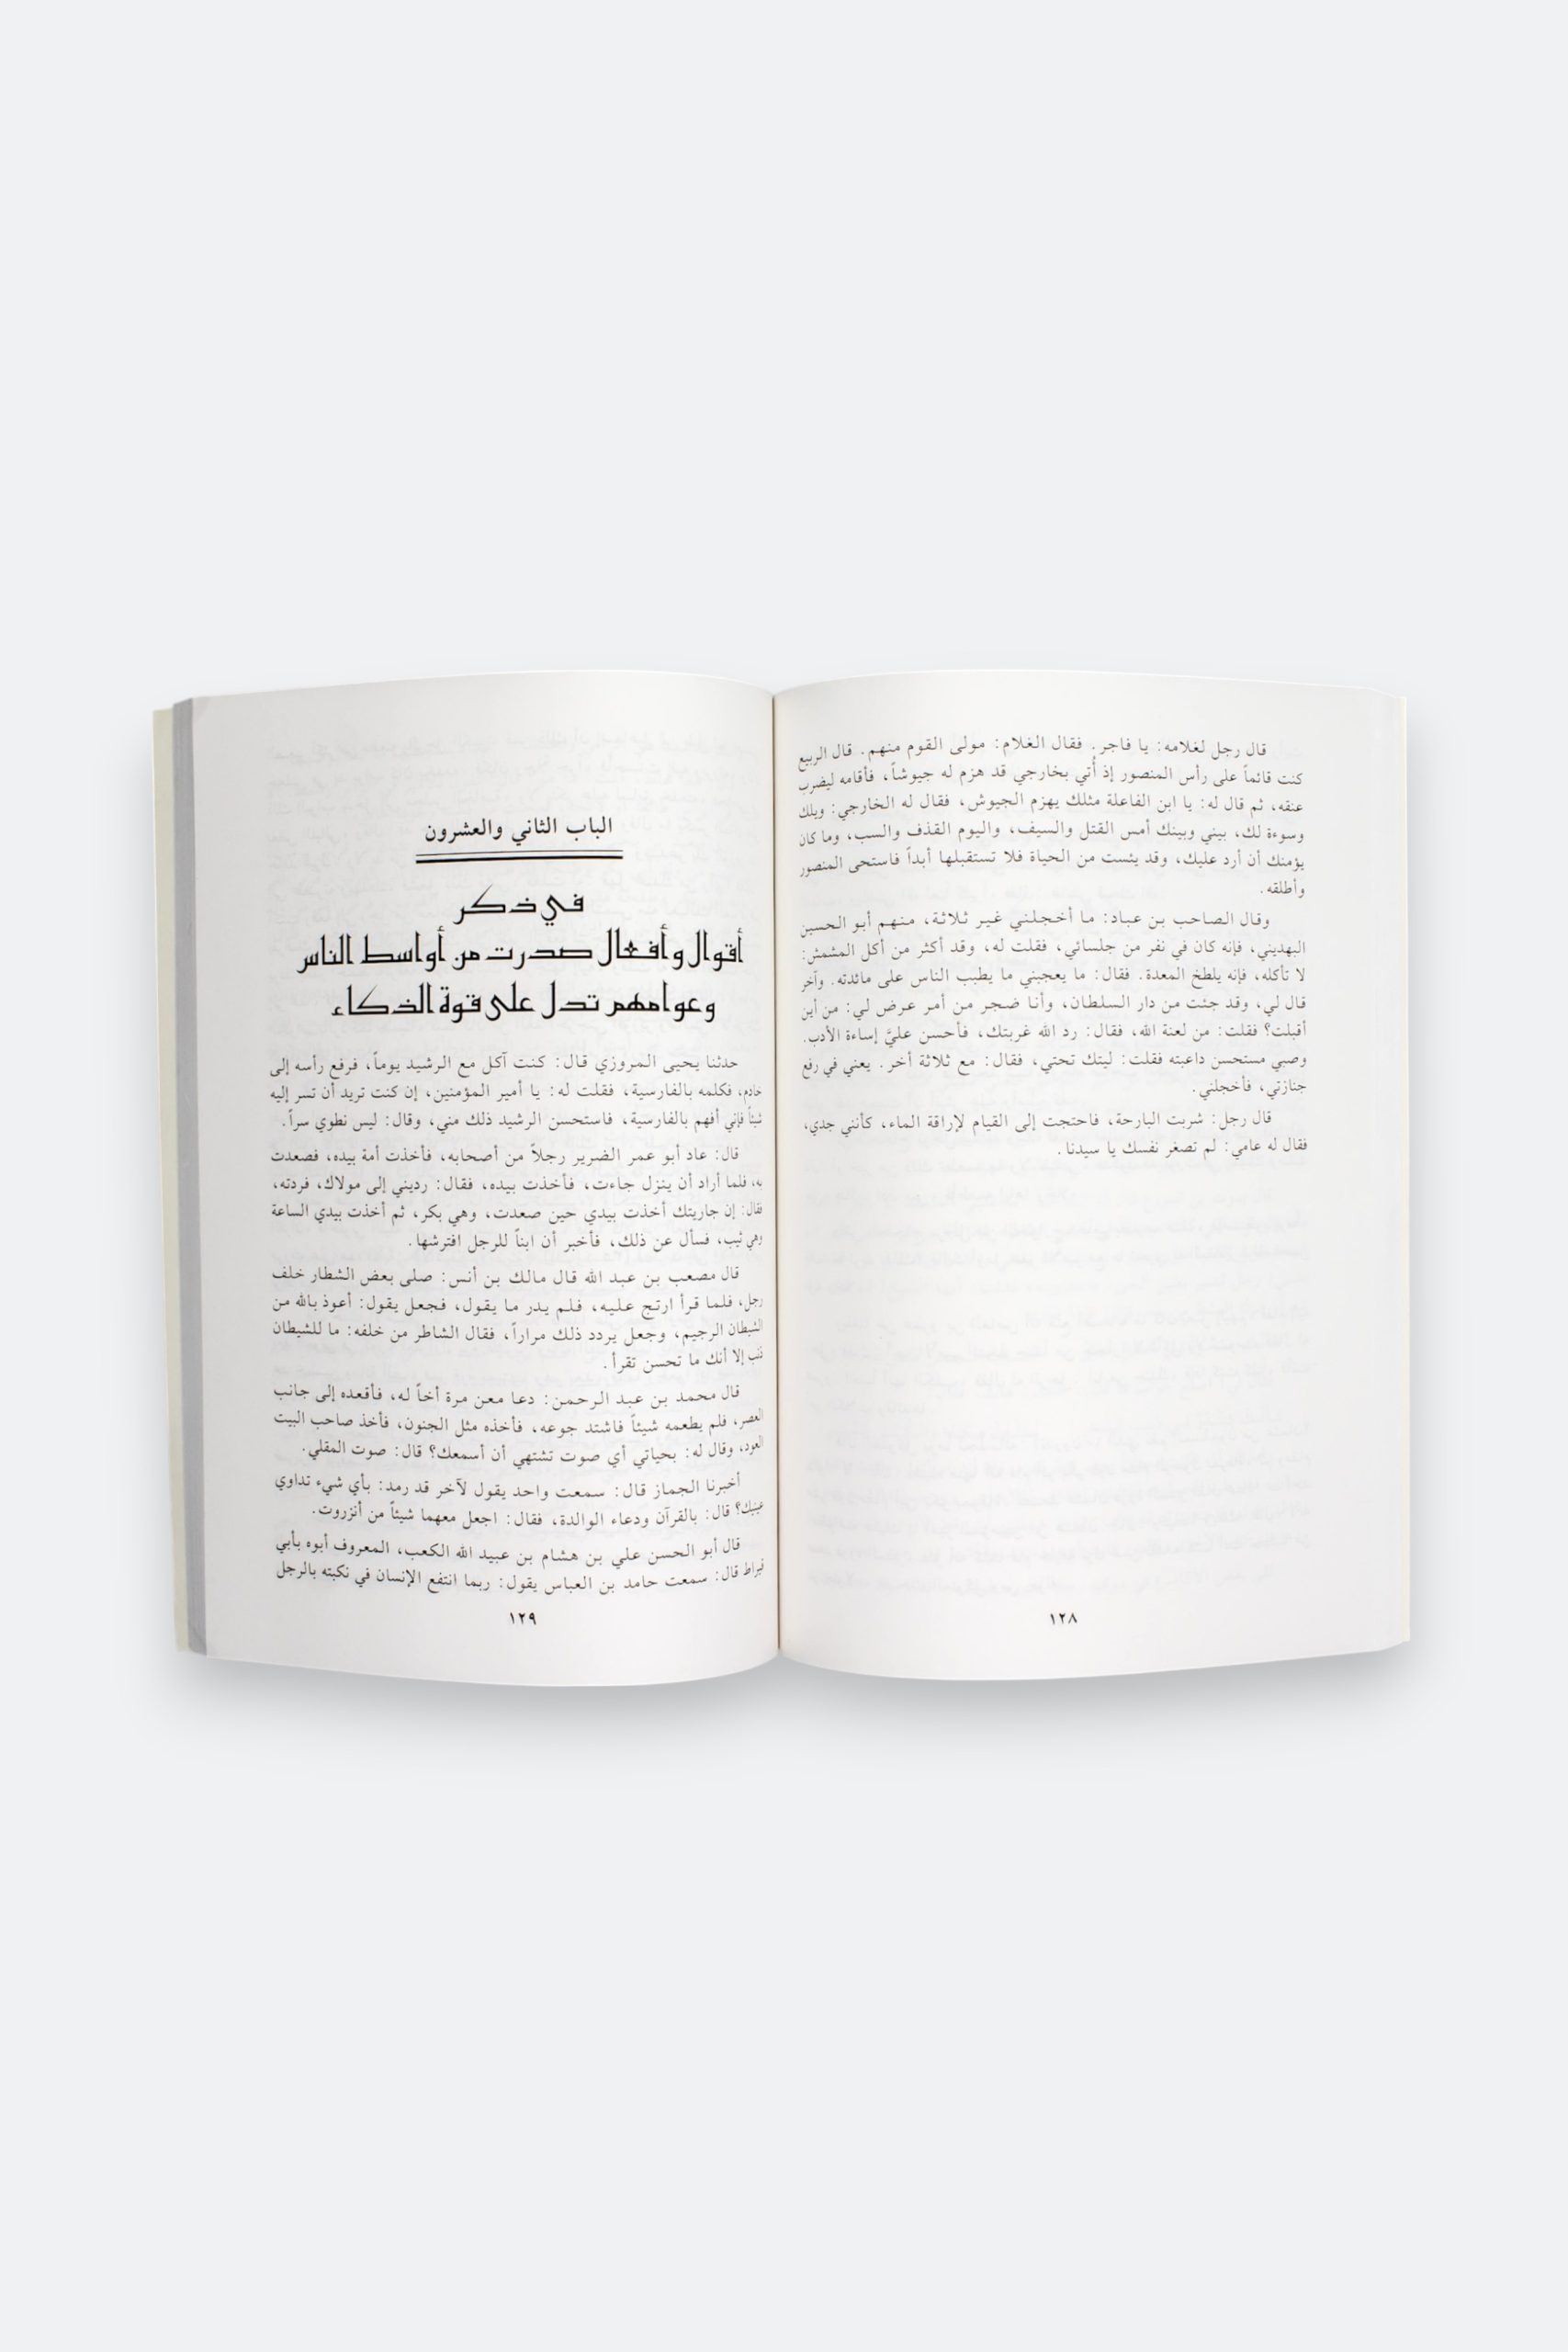 قال رجل لغلامه: يا فاجر. فقال الغلام: مولى القوم منهم. قال الربيع
كنت قائماً على رأس المنصور إذ أُتي بخارجي قد هزم له جيوشاً، فأقامه ليضرب
عنقه، ثم قال له: يا ابن الفاعلة مثلك يهزم الجيوش، فقال له الخارجي: ويلك
وسوءة لك، بيني وبينك أمس القتل والسيف، واليوم القذف والسب، وما كان
يؤمنك أن أرد عليك، وقد يئست من الحياة فلا تستقبلها أبداً فاستحى المنصور
وأطلقه.
وقال الصاحب بن عباد: ما أخجلني غير ثلاثة، منهم أبو الحسين
البهديني، فإنه كان في نفر من جلسائي، فقلت له، وقد أكثر من أكل المشمش:
لا تأكله، فإنه يلطخ المعدة. فقال: ما يعجبني ما يطبب الناس على مائدته. وآخر
قال لي، وقد جئت من دار السلطان، وأنا ضجر من أمر عرض لي: من أين
أقبلت؟ فقلت: من لعنة الله، فقال: رد الله غربتك، فأحسن عليَّ إساءة الأدب.
وصبي مستحسن داعبته فقلت: ليتك تحتي، فقال: مع ثلاثة أخر. يعني في رفع
جنازتي، فأخجلني.
قال رجل: شربت البارحة، فاحتجت إلى القيام لإراقة الماء، كأنني جدي،
فقال له عامي: لم تصغر نفسك يا سيدنا.
١٢٨
الباب الثاني والعشرون
في ذكر
أقوال وأفعال صدرت من أواسط الناس
وعوامهم تدل على قوة الذكاء
حدثنا يحيى المروزي قال: كنت آكل مع الرشيد يوماً، فرفع رأسه إلى
خادم، فكلمه بالفارسية، فقلت له: يا أمير المؤمنين، إن كنت تريد أن تسر إليه
شيئاً فإني أفهم بالفارسية، فاستحسن الرشيد ذلك مني، وقال: ليس نطوي سراً.
قال: عاد أبو عمر الضرير رجلاً من أصحابه، فأخذت أمة بيده، فصعدت
به، فلما أراد أن ينزل جاءت، فأخذت بيده، فقال: رديني إلى مولاك، فردته،
فقال: إن جاريتك أخذت بيدي حين صعدت، وهي بكر، ثم أخذت بيدي الساعة
وهي ثيب، فسأل عن ذلك، فأخبر أن ابناً للرجل افترشها.
قال مصعب بن عبد الله قال مالك بن أنس: صلى بعض الشطار خلف
رجل، فلما قرأ ارتج عليه، فلم يدر ما يقول، فجعل يقول: أعوذ بالله من
الشيطان الرجيم، وجعل يردد ذلك مراراً، فقال الشاطر من خلفه: ما للشيطان
ذنب إلا أنك ما تحسن تقرأ.
قال محمد بن عبد الرحمن: دعا معن مرة أخاً له، فأقعده إلى جانب
العصر، فلم يطعمه شيئاً فاشتد جوعه، فأخذه مثل الجنون، فأخذ صاحب البيت
العود، وقال له: بحياتي أي صوت تشتهي أن أسمعك؟ قال: صوت المقلي.
أخبرنا الجماز قال: سمعت واحد يقول لآخر قد رمد: بأي شيء تداوي
عينيك؟ قال: بالقرآن ودعاء الوالدة، فقال: اجعل معهما شيئاً من أنزروت.
قال أبو الحسن علي بن هشام بن عبيد الله الكعب، المعروف أبوه بأبي
قيراط قال: سمعت حامد بن العباس يقول: ربما انتفع الإنسان في نكبته بالرجل
١٢٩